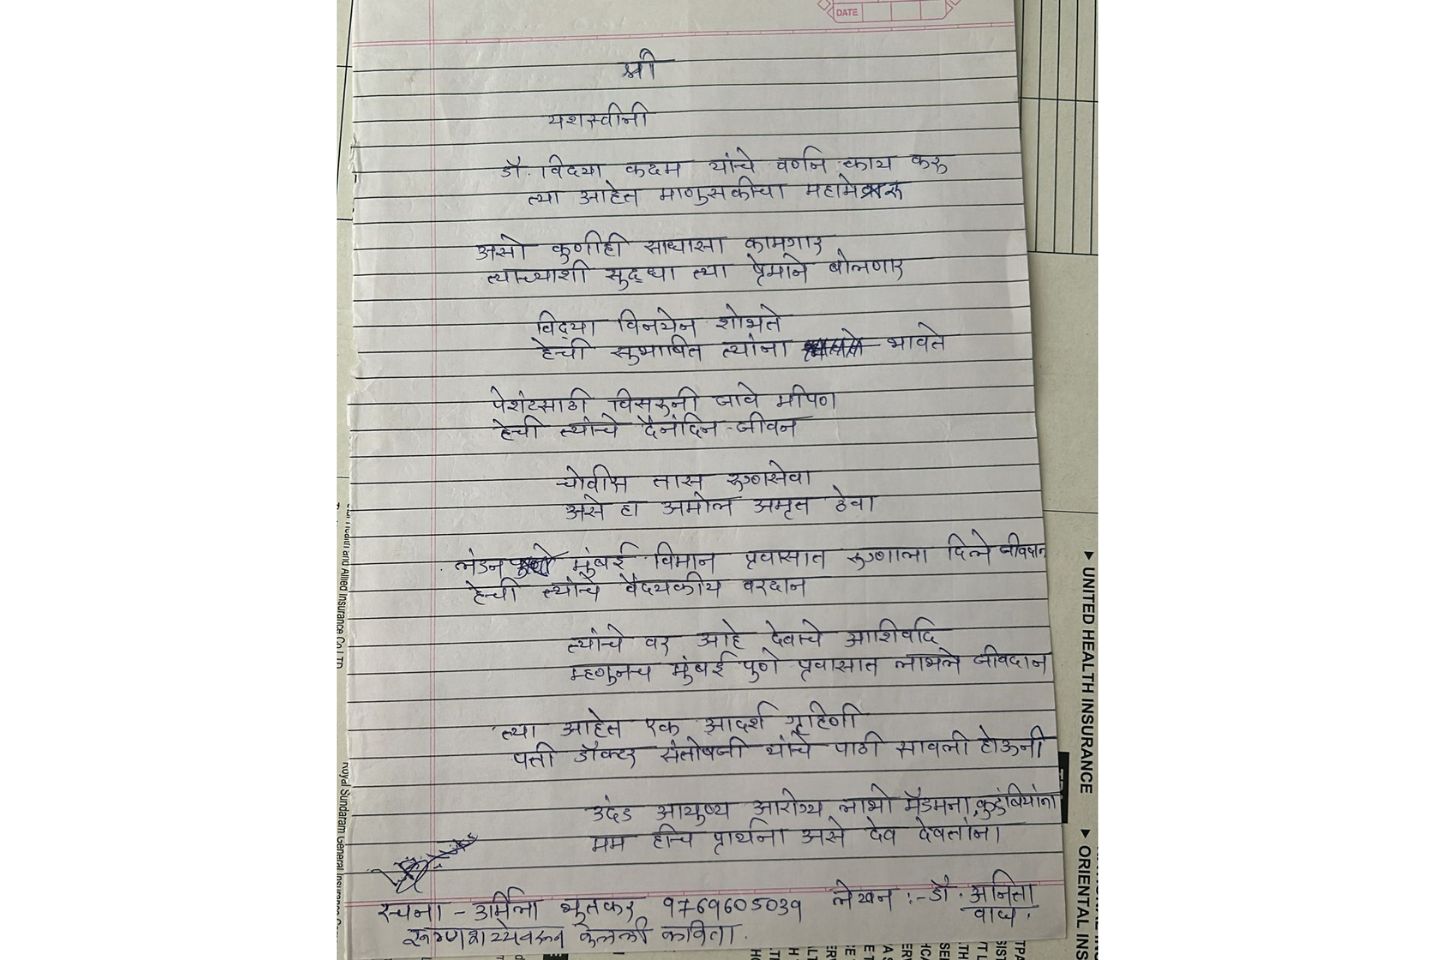 DATE
श्री
यशस्वीनी
डॉ. विदया कदम यांचे वर्णन काय करू
त्या आहेत माणुसकीचा महामेरू
असो कुणीही साधासा कामगार
त्याच्याशी सुद्धा त्या प्रेमाने बोलणार
विद्या विनयेन शोभते
हेची सुभाषित त्यांना भावते
पेशंटसाठी विसरूनी जावे मीपण
हेची त्यांचे दैनंदिन जीवन
चोवीस तास रुग्णसेवा
असे हा अमोल अमृत ठेवा
लंडन मुंबई विमान प्रवासात रुग्णाला दिले जीवदान
हेची त्यांचे वैदयकीय वरदान
त्यांचे वर आहे देवाचे आशिर्वाद
म्हणुनच मुंबई पुणे प्रवासात लाभले जीवदान
त्या आहेत एक आदर्श गृहिणी
पती डॉक्टर संतोषजी यांचे पाठी सावली होऊनी
उदंड आयुष्य आरोग्य लाभो मॅडमना, कुटुंबियांना
मम हीच प्रार्थना असे देव देवतांना
रचना - उर्मिला भुतकर 9769605039 लेखन :- डॉ. अनिता
वाघ.
रुग्णशय्येवरून केलेली कविता.
UNITED HEALTH INSURANCE
ORIENTAL INS
and Allied Insurance Co Ltd
Royal Sundaram General Insurance